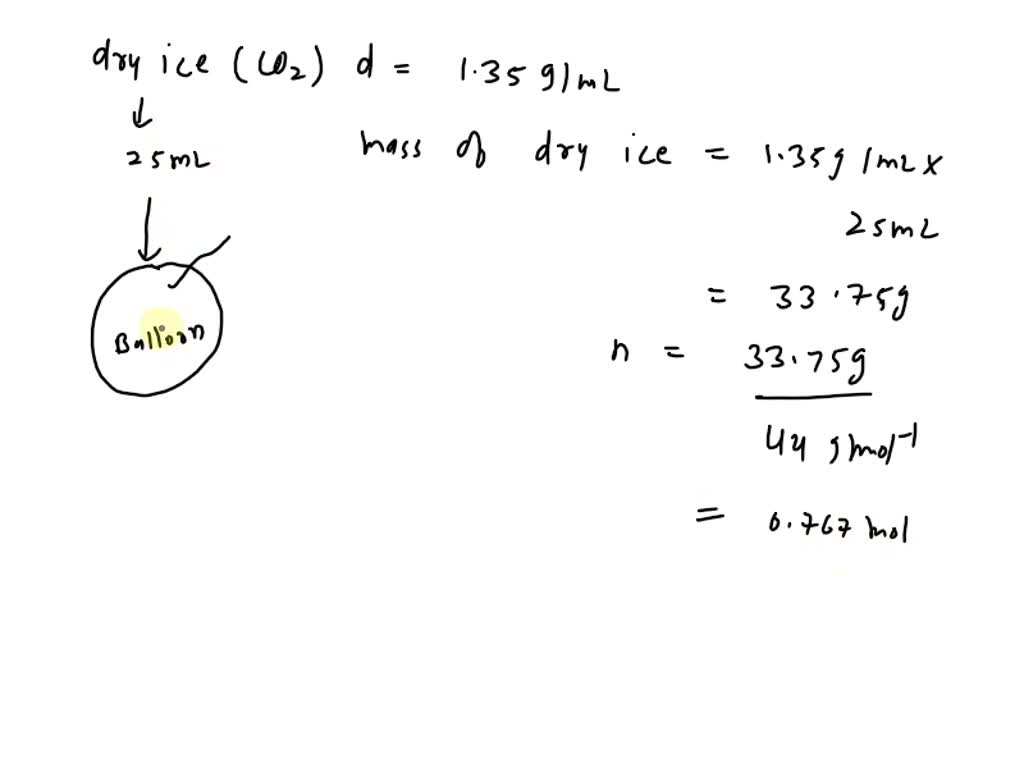 dry ice (CO2) d = 1.35 g/mL
↓
25mL
mass of dry ice = 1.35g/mL x
25mL
= 33.75g
Balloon
n = 33.75g
44 gmol-1
= 0.767 mol